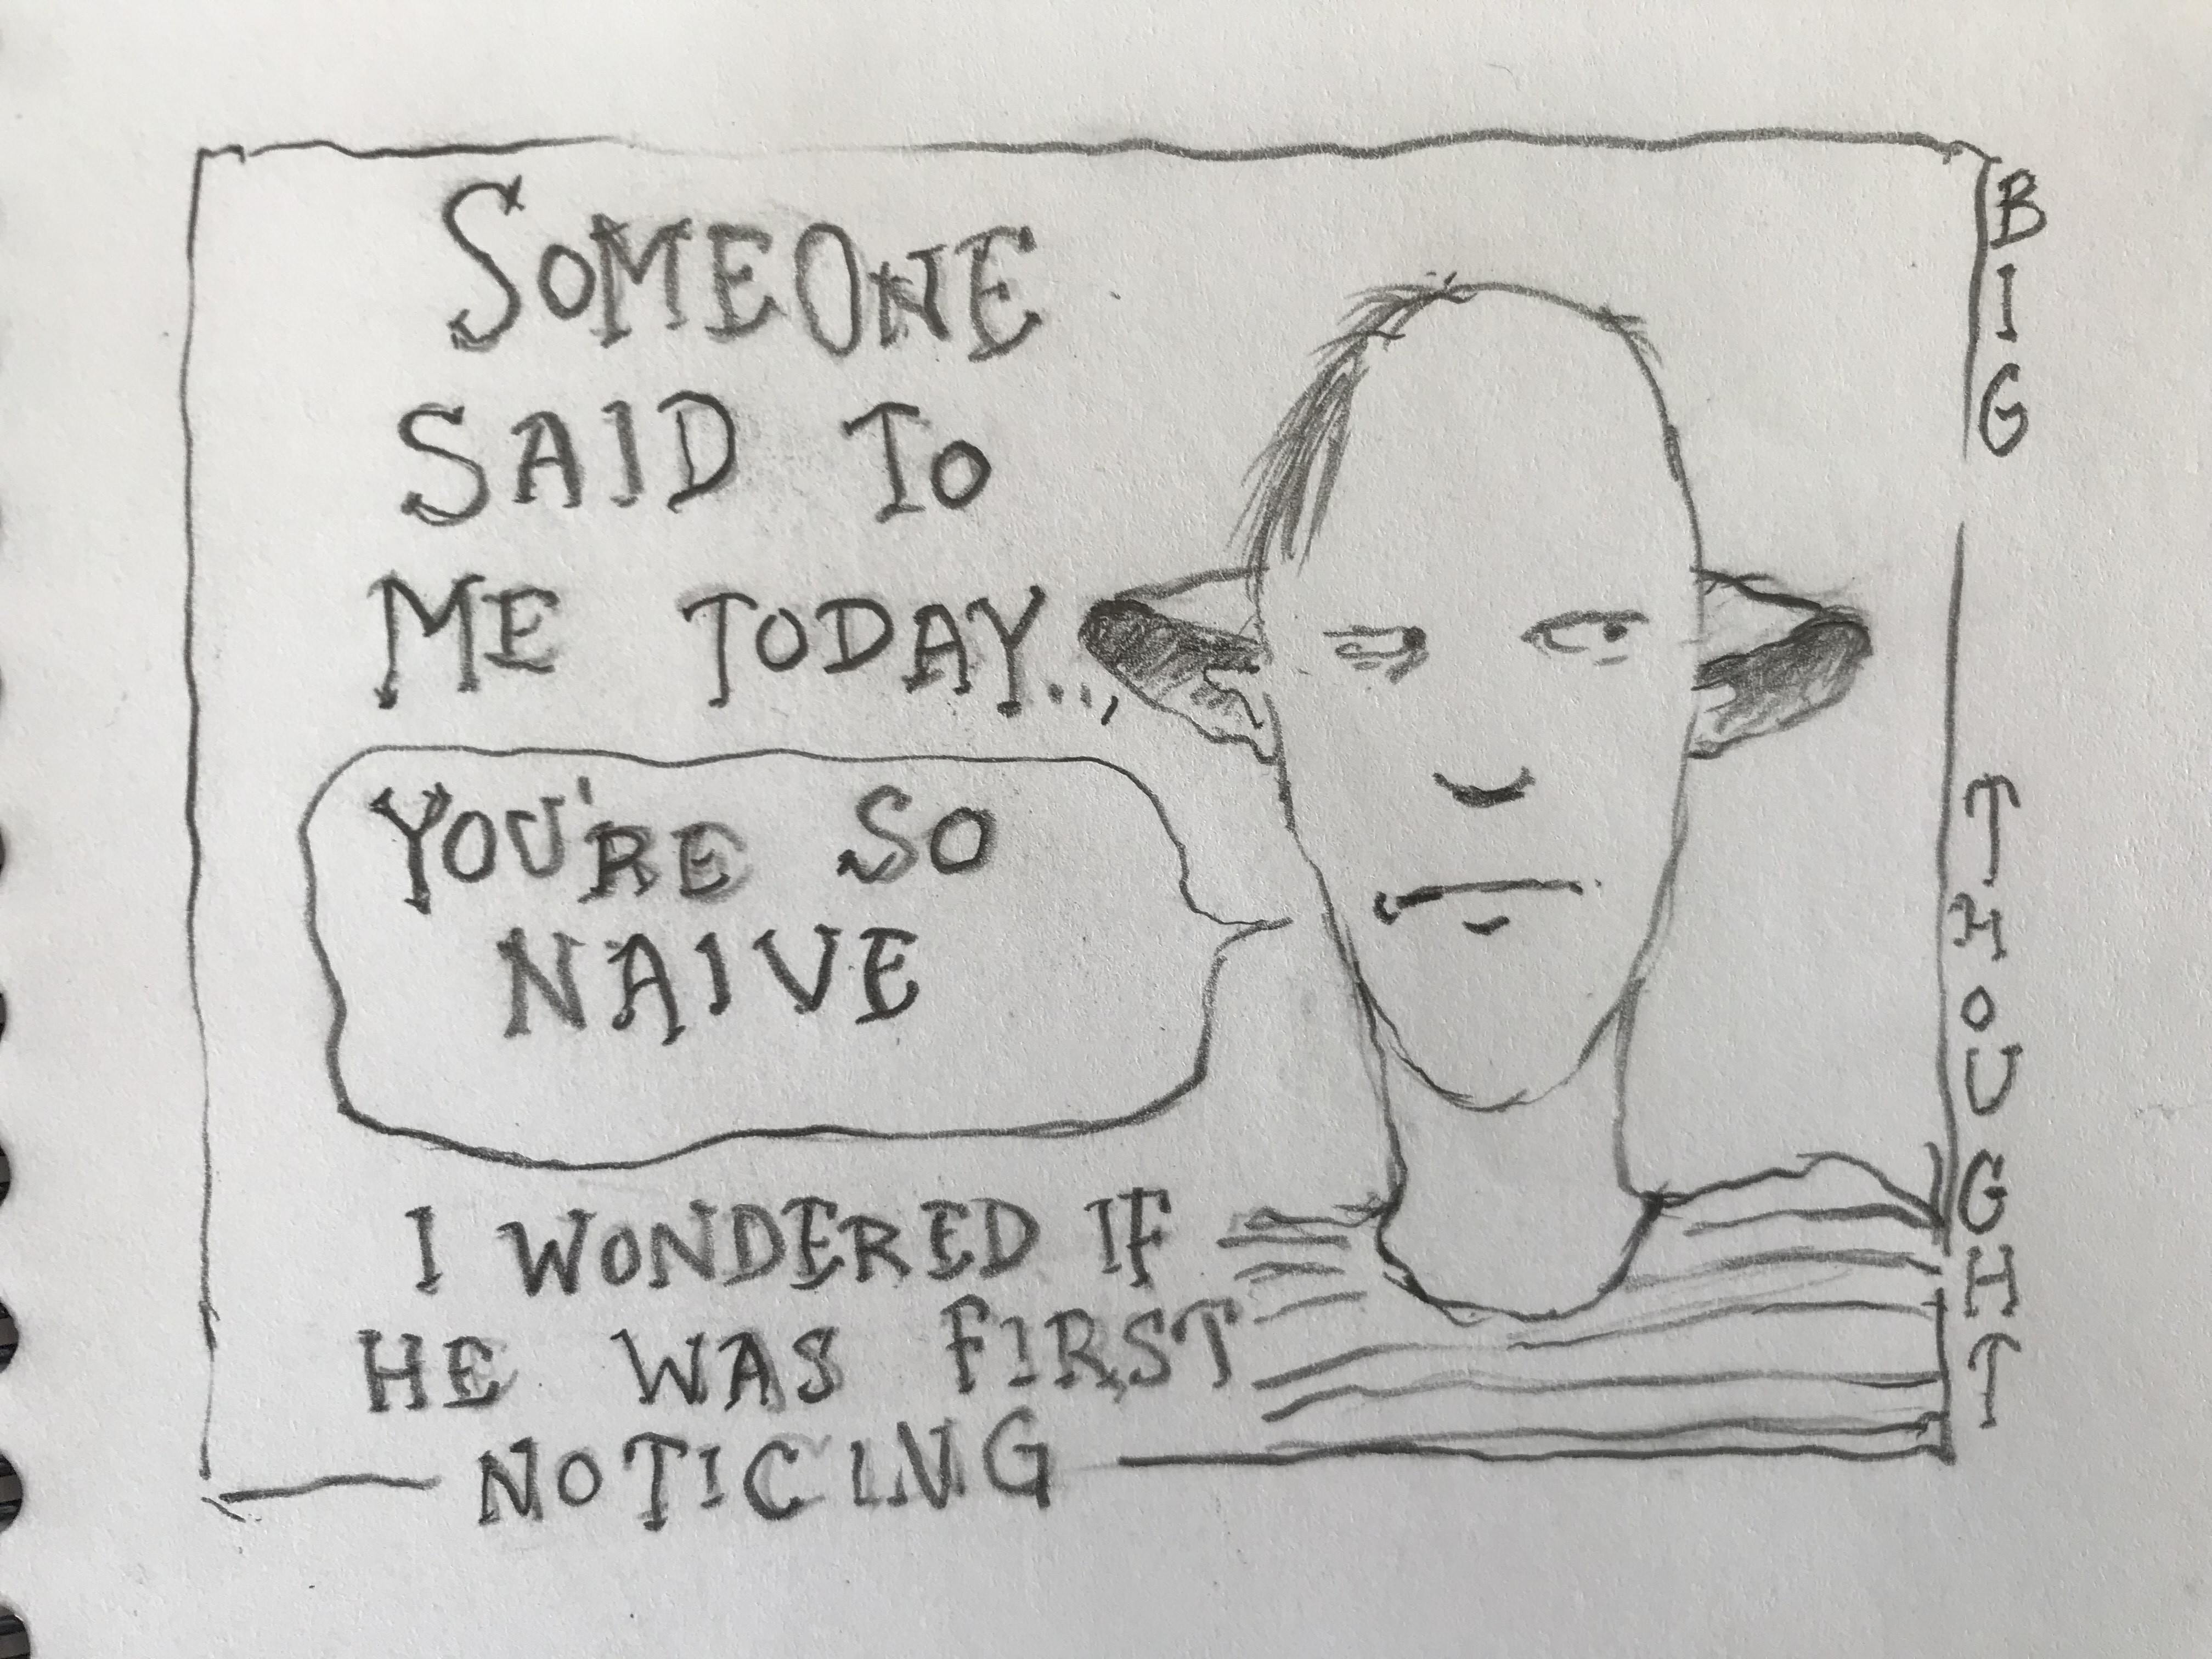 SOMEONE
SAID TO
ME TODAY...
YOU'RE SO
NAIVE
I WONDERED IF
HE WAS FIRST
NOTICING
BIG THOUGHT